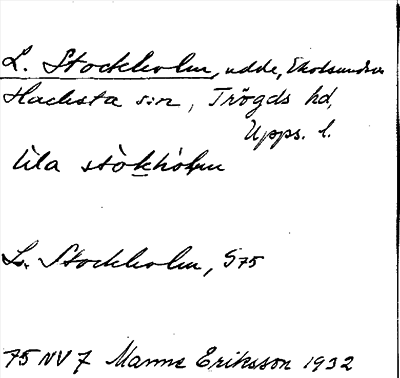 L. Stockholm, udde, Ekolsundsv
Hacksta s:n, Trögds hd,
Upps. l.
lìla stòkhólm
L. Stockholm, S75
75 NV 7 Manne Eriksson 1932